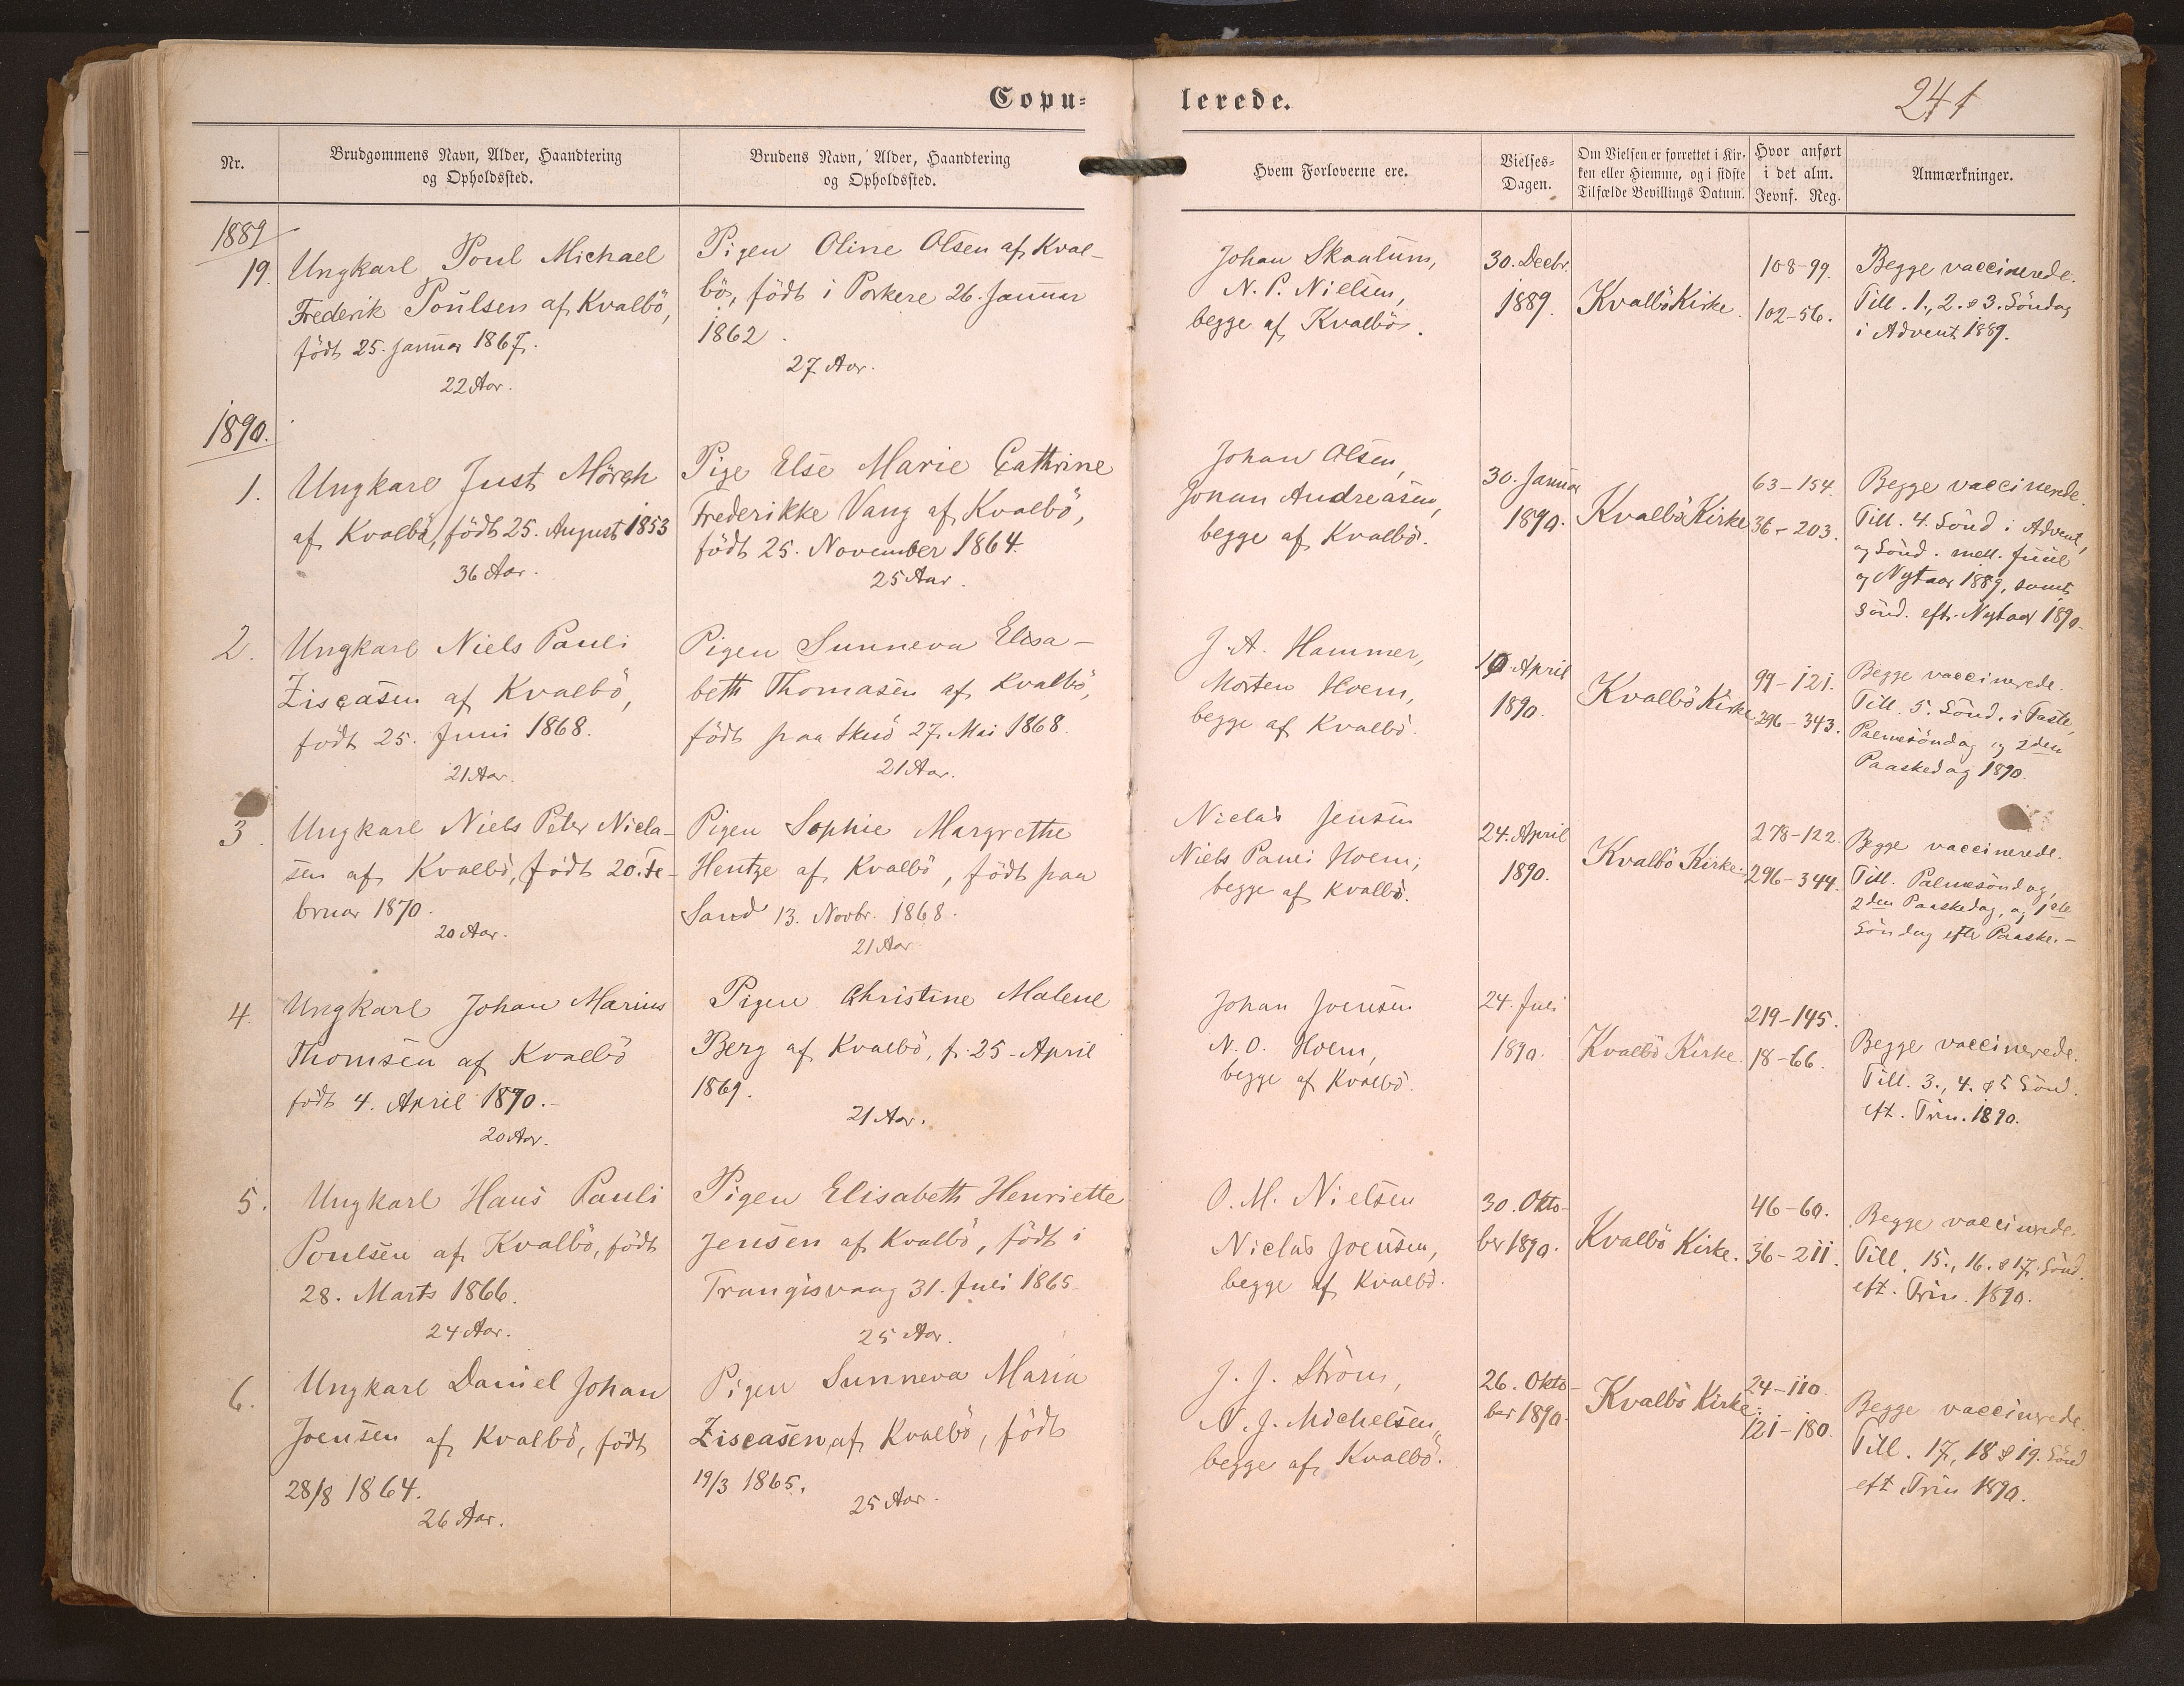 Copu-
lerede.
241
Nr.
Brudgommens Navn, Alder, Haandtering
og Opholdssted.
Brudens Navn, Alder, Haandtering
og Opholdssted.
Hvem Forloverne ere.
Vielses-
Dagen.
Om Vielsen er forrettet i Kir-
ken eller Hiemme, og i sidste
Tilfælde Bevillings Datum.
Hvor anført
i det alm.
Jevnf. Reg.
Anmærkninger.
1889
19.
Ungkarl Poul Michael
Frederik Poulsen af Kvalbö,
født 25. Januar 1867.
22 Aar.
Pigen Oline Olsen af Kval-
bö, födt i Porkere 26. Januar
1862.
27 Aar.
Johan Skaalum,
N. P. Nielsen,
begge af Kvalbö.
30. Decbr.
1889.
Kvalbö Kirke.
108-99.
102-56.
Begge vaccinerede.
Till. 1., 2. & 3. Söndag
i Advent 1889.
1890.
1.
Ungkarl Just Mörch
af Kvalbö, födt 25. August 1853
36 Aar.
Pige Else Marie Cathrine
Frederikke Vang af Kvalbö,
födt 25. November 1864.
25 Aar.
Johan Olsen,
Jonan Andreasen,
begge af Kvalbö.
30. Januar
1890.
Kvalbö Kirke
63-154.
36-203.
Begge vaccinerede.
Till. 4. Sönd i Advent,
og Sönd. mell. Juul
og Nytaar 1889, samt
Sönd. eft. Nytaar 1890.
2.
Ungkarl Niels Pauli
Ziscasen af Kvalbö,
födt 25. Juni 1868.
21 Aar.
Pigen Sunneva Elisa-
beth Thomasen af Kvalbö,
födt paa Skuö 27. Mai 1868.
21 Aar.
J. A. Hammer,
Morten Hoem,
begge af Kvalbö.
10. April
1890.
Kvalbö Kirke
99-121.
296-343.
Begge vaccinerede.
Till. 5. Sönd. i Faste,
Palmesöndag og 2den
Paaskedag 1890.
3.
Ungkarl Niels Peter Nicla-
sen af Kvalbö, födt 20. Fe-
bruar 1870.
20 Aar.
Pigen Sophie Margrethe
Hentze af Kvalbö, födt paa
Sand 13. Novbr. 1868.
21 Aar
Niclas Jensen
Niels Pauli Hoem,
begge af Kvalbö.
24. April
1890.
Kvalbö Kirke.
278-122.
296-344.
Begge vaccinerede.
Till. Palmesöndag,
2den Paaskedag, og 1ste
Söndag efter Paaske.-
4.
Ungkarl Johan Marius
Thomsen af Kvalbö
födt 4. April 1870.-
20 Aar.
Pigen Christine Malene
Berg af Kvalbö, f. 25. April
1869.
21 Aar.
Johan Joensen
N. O. Hoem,
begge af Kvalbö.
24. Juli
1890.
Kvalbö Kirke.
219-145.
18-66.
Begge vaccinerede.
Till. 3., 4. & 5 Sönd.
eft. Trin. 1890.
5.
Ungkarl Hans Pauli
Poulsen af Kvalbö, födt
28. Marts 1866.
24 Aar.
Pigen Elisabeth Henriette
Jensen af Kvalbö, födt i
Trangisvaag 31. Juli 1865.
25 Aar.
O. M. Nielsen
Niclas Joensen,
begge af Kvalbö.
30. Okto-
ber 1890.
Kvalbö Kirke.
46-60.
36-211.
Begge vaccinerede.
Till. 15., 16. & 17. Sönd.
eft. Trin. 1890.
6.
Ungkarl Daniel Johan
Joensen af Kvalbö, födt
28/8 1864.
26 Aar.
Pigen Sunneva Maria
Ziscasen af Kvalbö, födt
19/3 1865.
25 Aar.
J. J. Ström,
N. J. Michelsen,
begge af Kvalbö.
26. Okto-
ber 1890.
Kvalbö Kirke.
24-110.
121-180.
Begge vaccinerede.
Till. 17, 18 & 19. Sönd
eft Trin 1890.